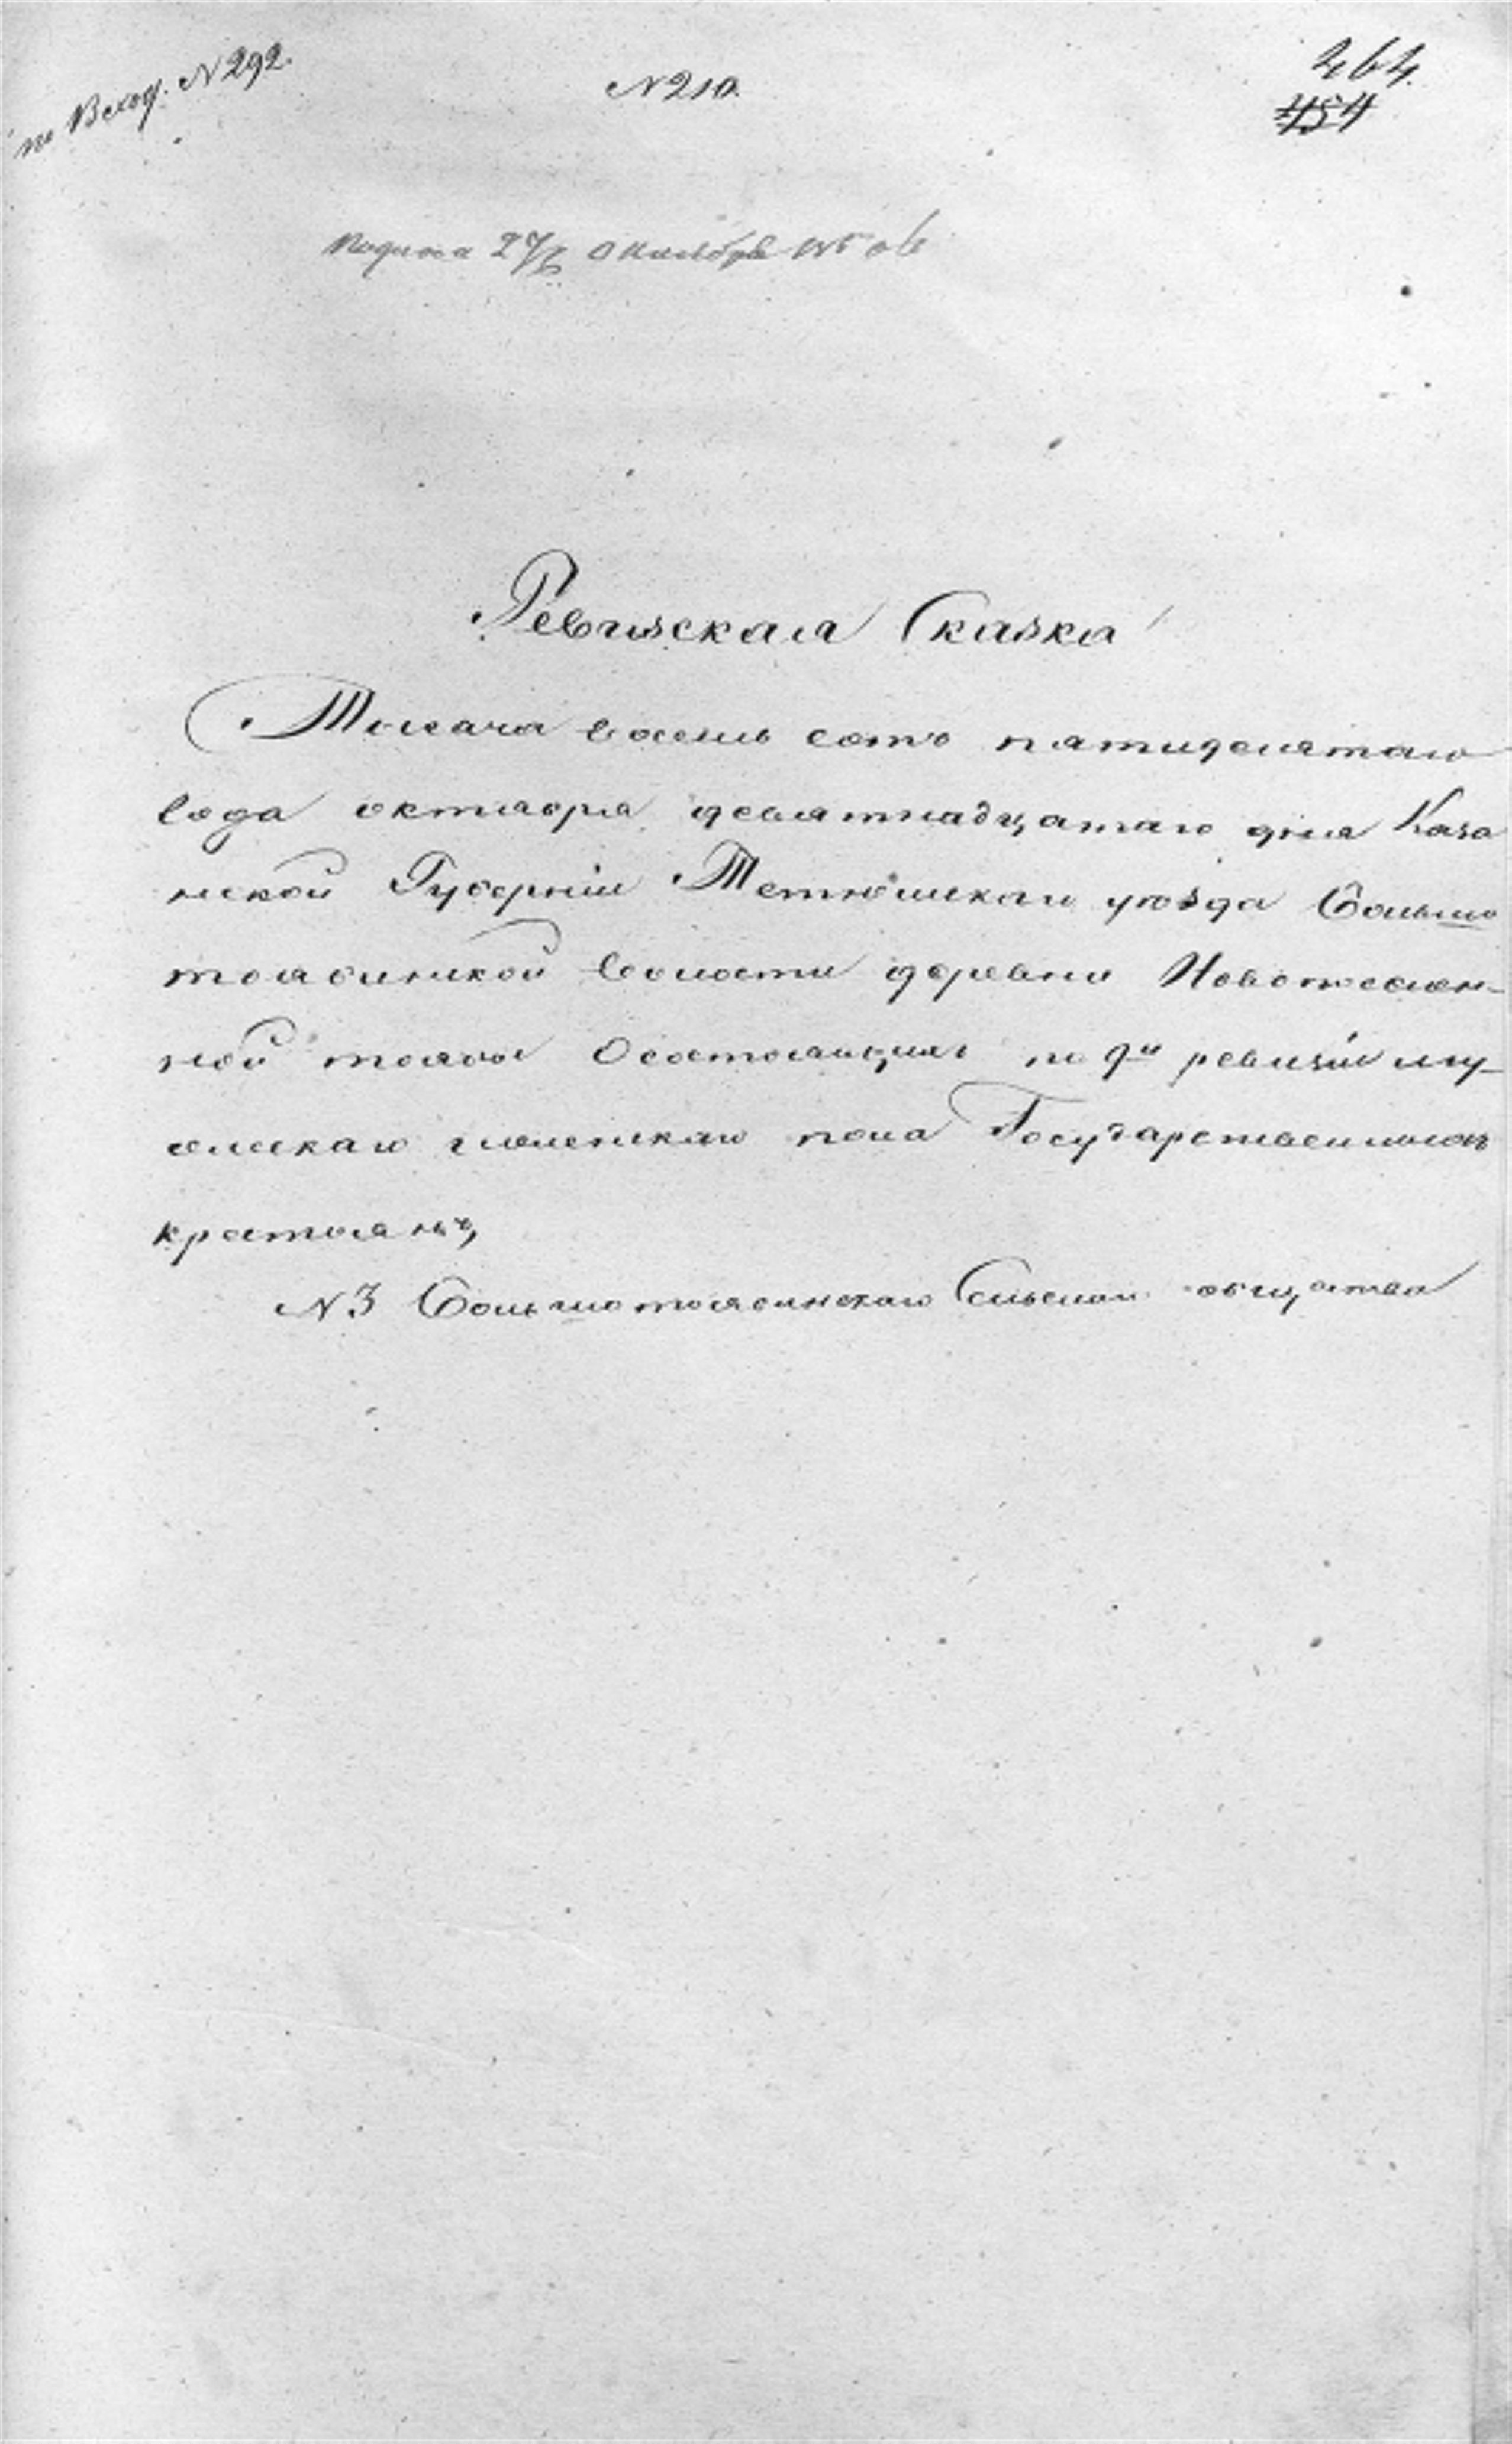 по Вход. N 292.
N 210.
464.
454
Подана 27 Октября
Ревизская Сказка
Тысяча восемь сотъ пятидесятаго
года октября девятнадцатаго дня Каза
нской Губерніи Тетюшскаго уѣзда Больше
тоябинской волости деревни Новопоселен-
ной тоябы О состоящихъ по 9й ревизіи му-
жескаго и женскаго пола Государственныхъ
крестьянъ,
N 3 Большетоябинскаго Сельскаго общества